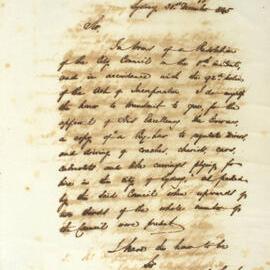 Sydney 31st December 1845
Sir,
In terms of a Resolution
of the City Council on the 8th Instant,
and in accordance with the 92d Section
of the Act of Incorporation I do myself
the honor to transmit to you, for the
approval of His Excellency the Governor,
a copy of a By-law "to regulate Drivers
and driving of coaches, chariots, cars,
cabriolets and like carriages plying for
hire in the City of Sydney" as passed
by the said Council when upwards of
two thirds of the whole number of
the Council were present.
I have the honor to be
Sir